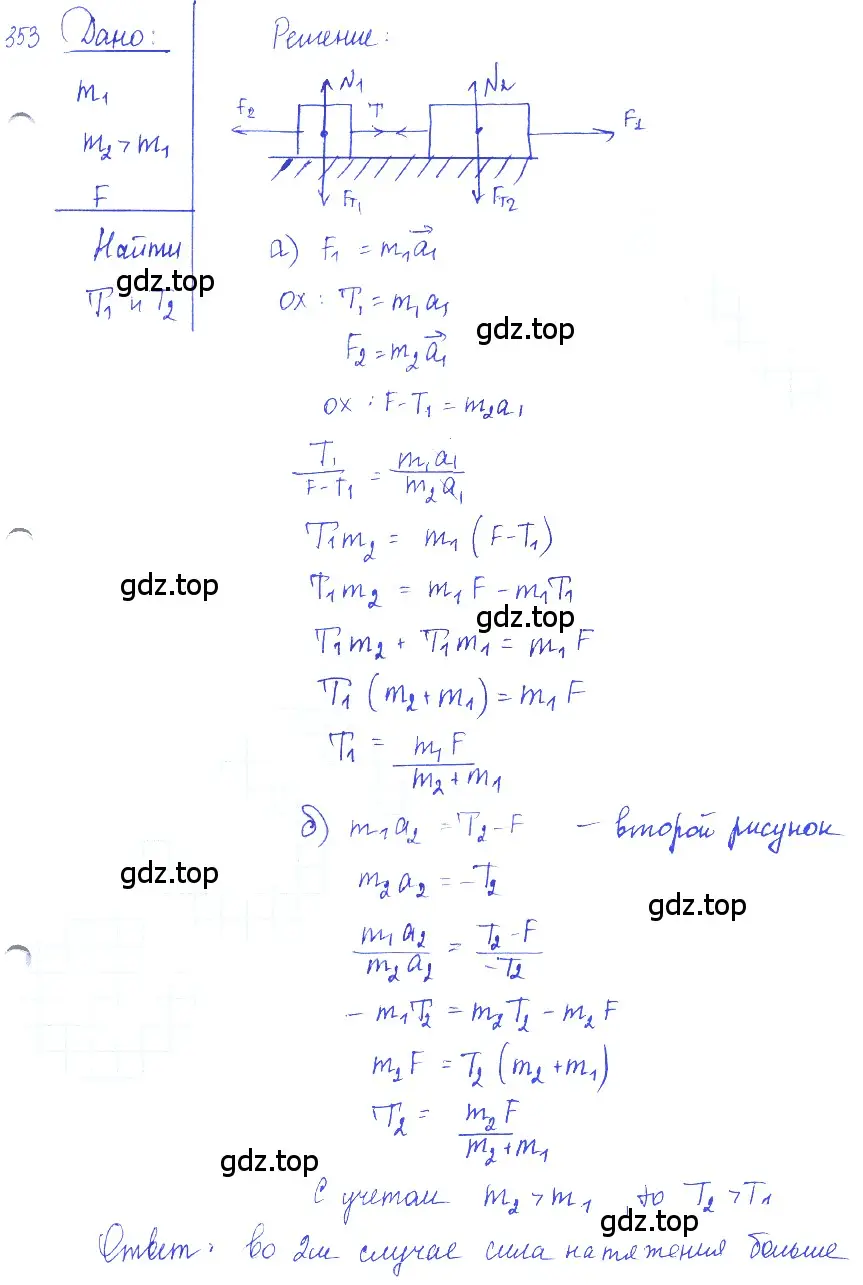 353 Дано: Решение:
m₁
m₂ > m₁
F
Найти
T₁ и T₂
N₁ N₂
F₂ T F₁
Fт₁ Fт₂
а) F₁ = m₁a⃗₁
gdz.top
ox : T₁ = m₁a₁
gdz.top
F₂ = m₂a⃗₁
ox : F-T₁ = m₂a₁
T₁/(F-T₁) = m₁a₁/(m₂a₁)
T₁m₂ = m₁(F-T₁)
gdz.top
T₁m₂ = m₁F - m₁T₁
gdz.top
T₁m₂ + T₁m₁ = m₁F
T₁(m₂+m₁) = m₁F
T₁ = m₁F/(m₂+m₁)
б) m₁a₂ = T₂-F – второй рисунок
gdz.top
m₂a₂ = -T₂
gdz.top
m₁a₂/(m₂a₂) = (T₂-F)/(-T₂)
- m₁T₂ = m₂T₂ - m₂F
m₂F = T₂(m₂+m₁)
T₂ = m₂F/(m₂+m₁)
gdz.top
С учетом m₂ > m₁, то T₂ > T₁
gdz.top
Ответ: во 2м случае сила натяжения больше